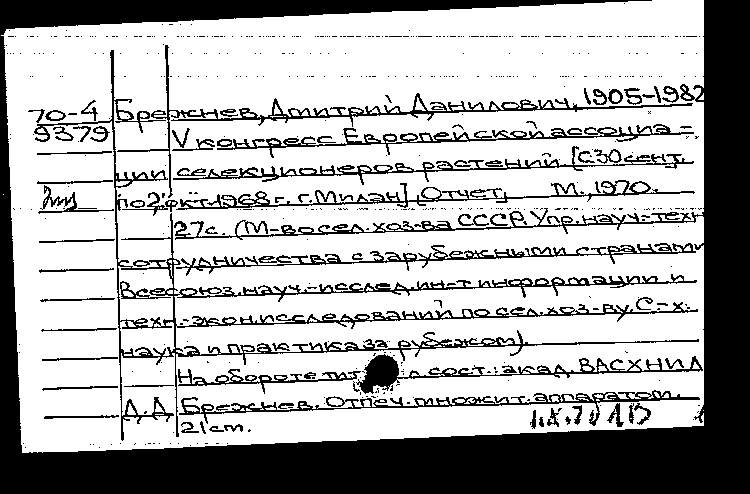 70-4 Брежнев, Дмитрий Данилович, 1905-1982
9379 V конгресс Европейской ассоциа=
ции селекционеров растений [С 30 сент.
по 2 окт. 1968 г. г. Милан]. Отчет, М., 1970.
27с. (М-во сел. хоз-ва СССР. Упр. науч.-техн
сотрудничества с зарубежными странами
Всесоюз. науч.-исслед. ин-т информации и
техн.-экон. исследований по сел. хоз-ву. С-х.
наука и практика за рубежом).
На обороте тит. л. сост.: акад. ВАСХНИЛ
Д.Д. Брежнев. Отпеч. множит. аппаратом.
21 cm.